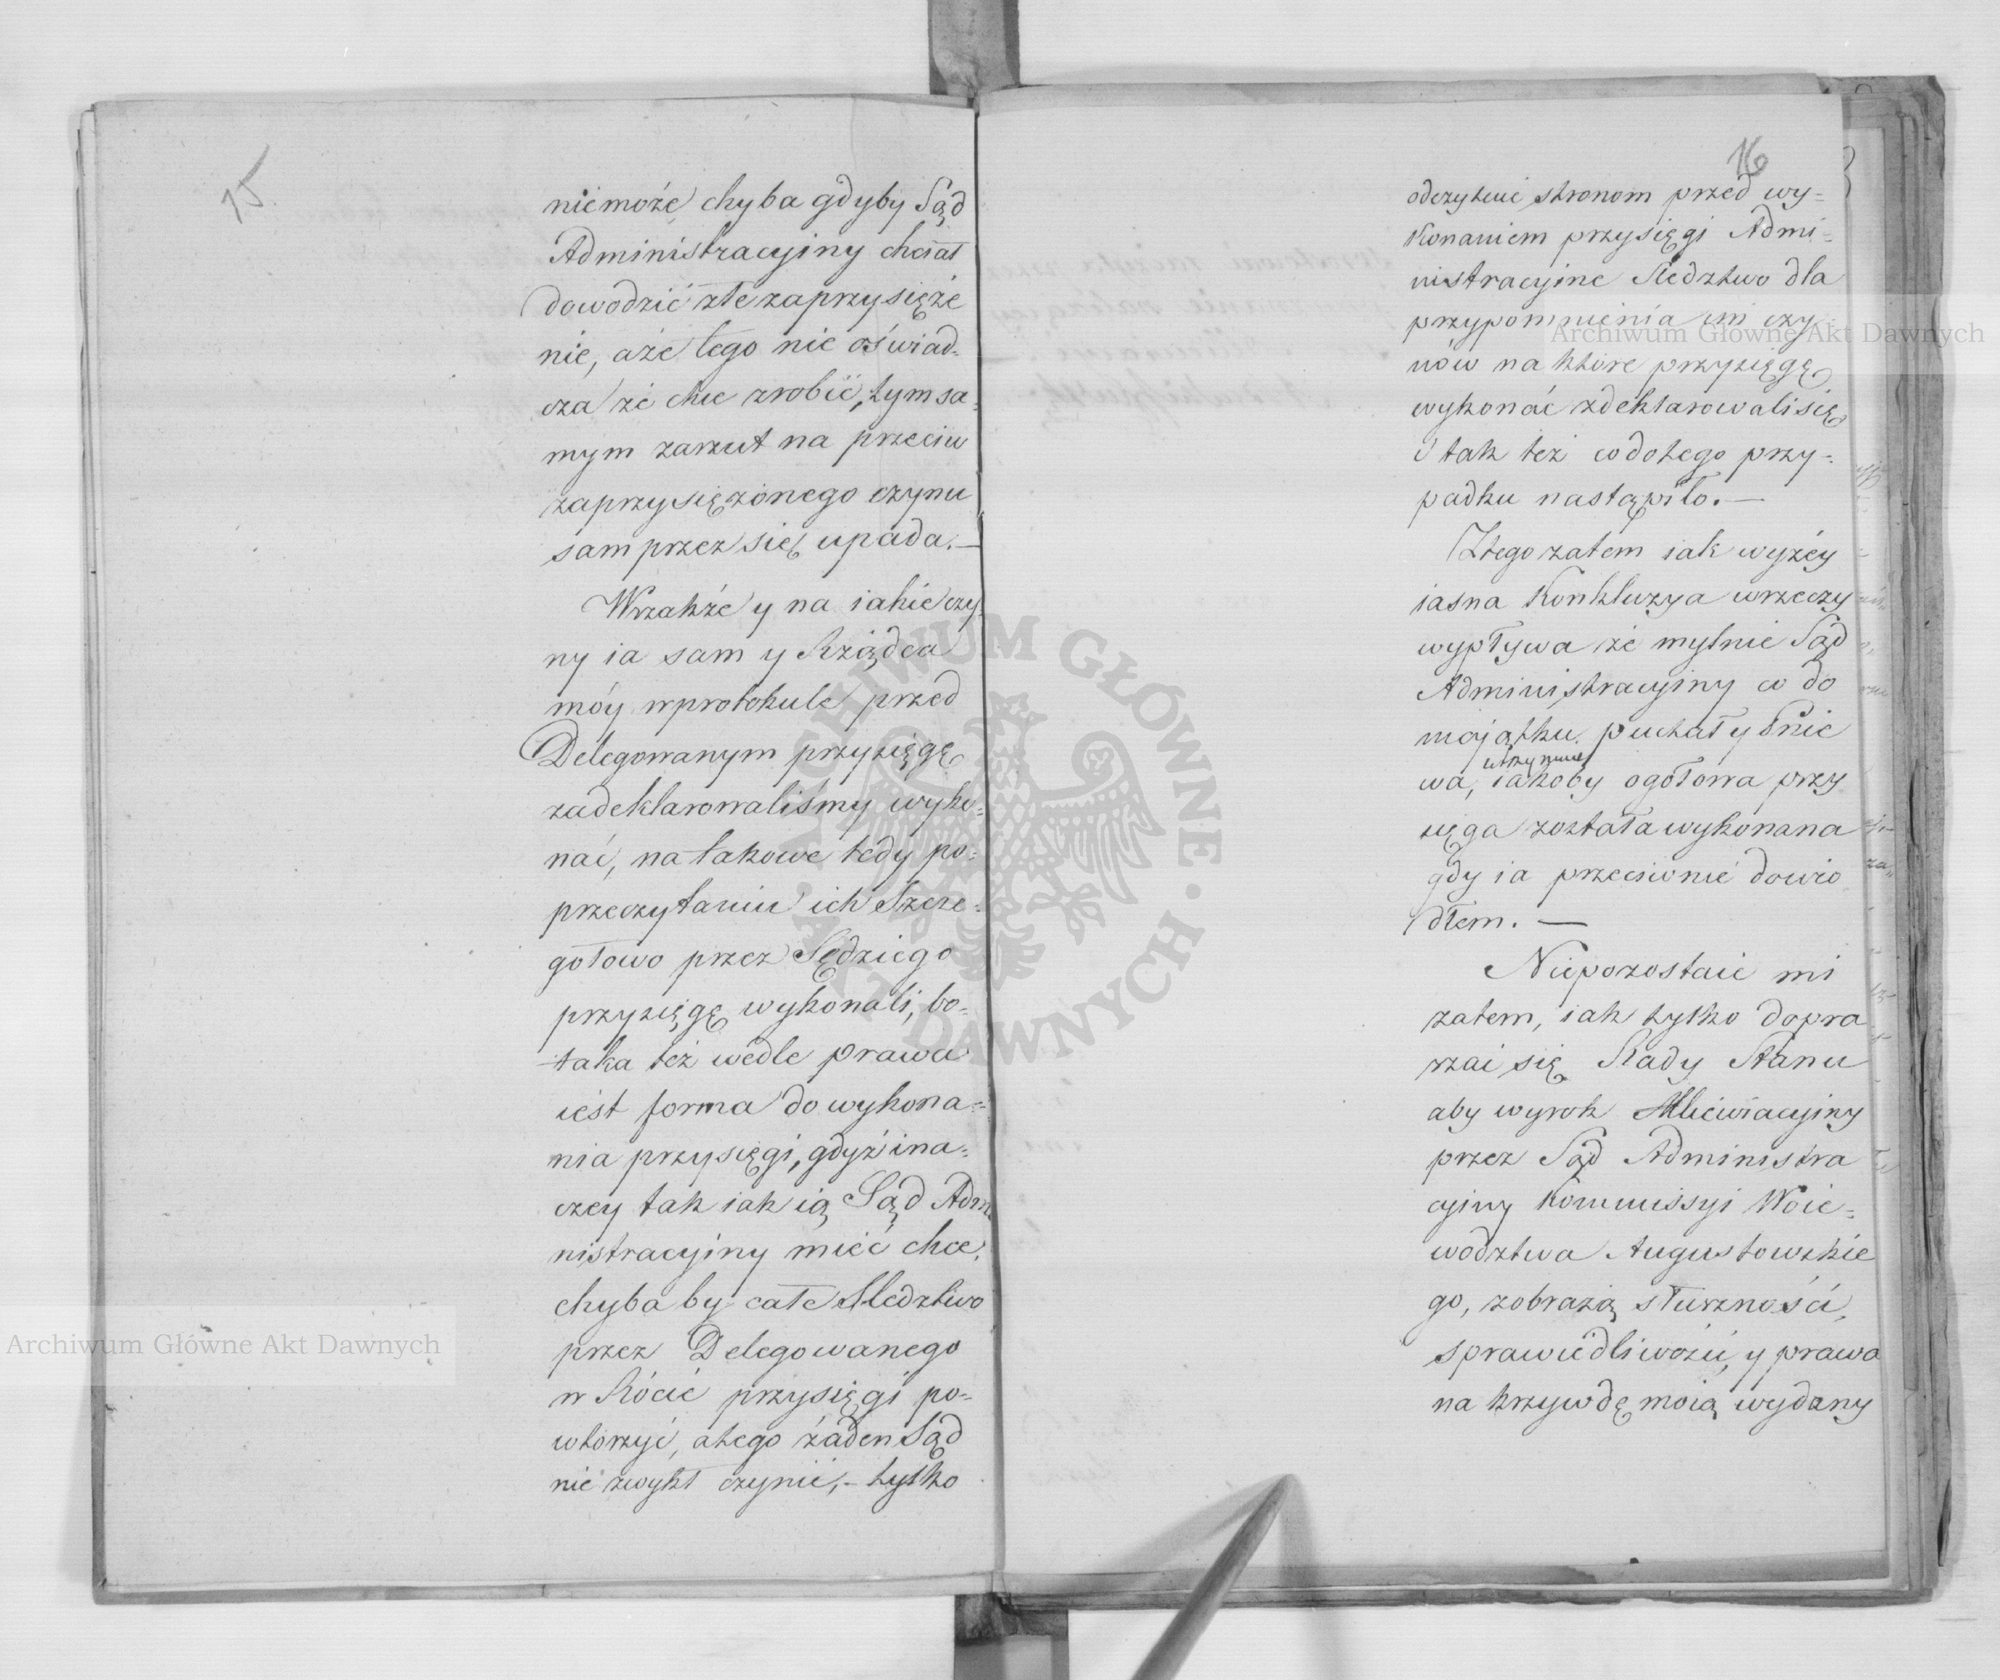 15
niemoże chyba gdyby Sąd
Administracyiny chciał
dowodzić złe zaprzysięże
nie, aże tego nie oświad-
cza że chce zrobić, tym sa-
mym zarzut na przeciw
zaprzysiężonego czynu
sam przez się upada.—
Wszakże y na iakie czy-
ny ia sam y Rządca
móy w protokule przed
Delegowanym przysięgę
zadeklarowaliśmy wyko-
nać, na takowe tedy po-
przeczytaniu ich Szcze-
gołowo przez Sędziego
przysięgę wykonali, bo-
taka też wedle prawa
iest forma do wykona-
nia przysięgi, gdyż ina-
czey tak iak ią Sąd Admi
nistracyiny mieć chce,
chyba by całe Sledztwo
przez Delegowanego
w Rócie przysięgi po-
wtorzyć, a tego żaden Sąd
nie zwykł czynić,- tylko
16
odczytuie stronom przed wy-
konaniem przysięgi Admi-
nistracyine Sledztwo dla
przypomnienia im czy
nów na które przysięgę
wykonać zdeklarowali się
i tak też co do tego przy-
padku nastąpiło.—
Z tego zatem iak wyżey
iasna Konkluzya w rzeczy
wypływa że mylnie Sąd
Administracyiny co do
maiątku puchały Gnie
utrzymuie
wa, iakoby ogołowa przy
sięga została wykonana
gdy ia przeciwnie dowio
dłem.—
Niepozostaie mi
zatem, iak tylko dopra
szai się Rady Stanu
aby wyrok Alliewiacyiny
przez Sąd Administra
cyiny Kommissyi Woie-
wodztwa Augustowskie
go, z obrazą słuszności,
sprawiedliwości, y prawa
na krzywdę moią wydany
Archiwum Główne Akt Dawnych
Archiwum Główne Akt Dawnych
ARCHIWUM GŁÓWNE AKT DAWNYCH